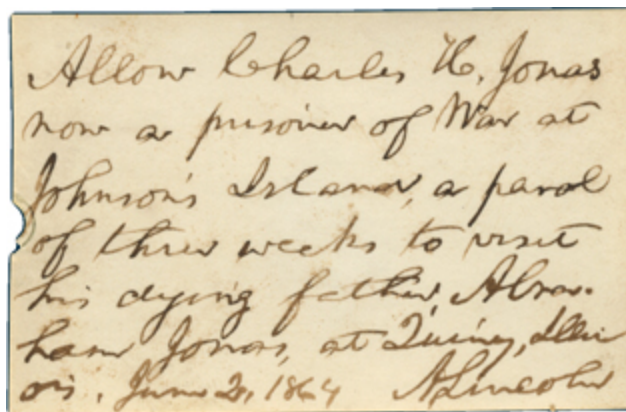 Allow Charles H. Jonas
now a prisoner of War at
Johnson's Island, a parol
of three weeks to visit
his dying father, Abra-
ham Jonas, at Quincy, Illin
ois. June 2, 1864 A. Lincoln